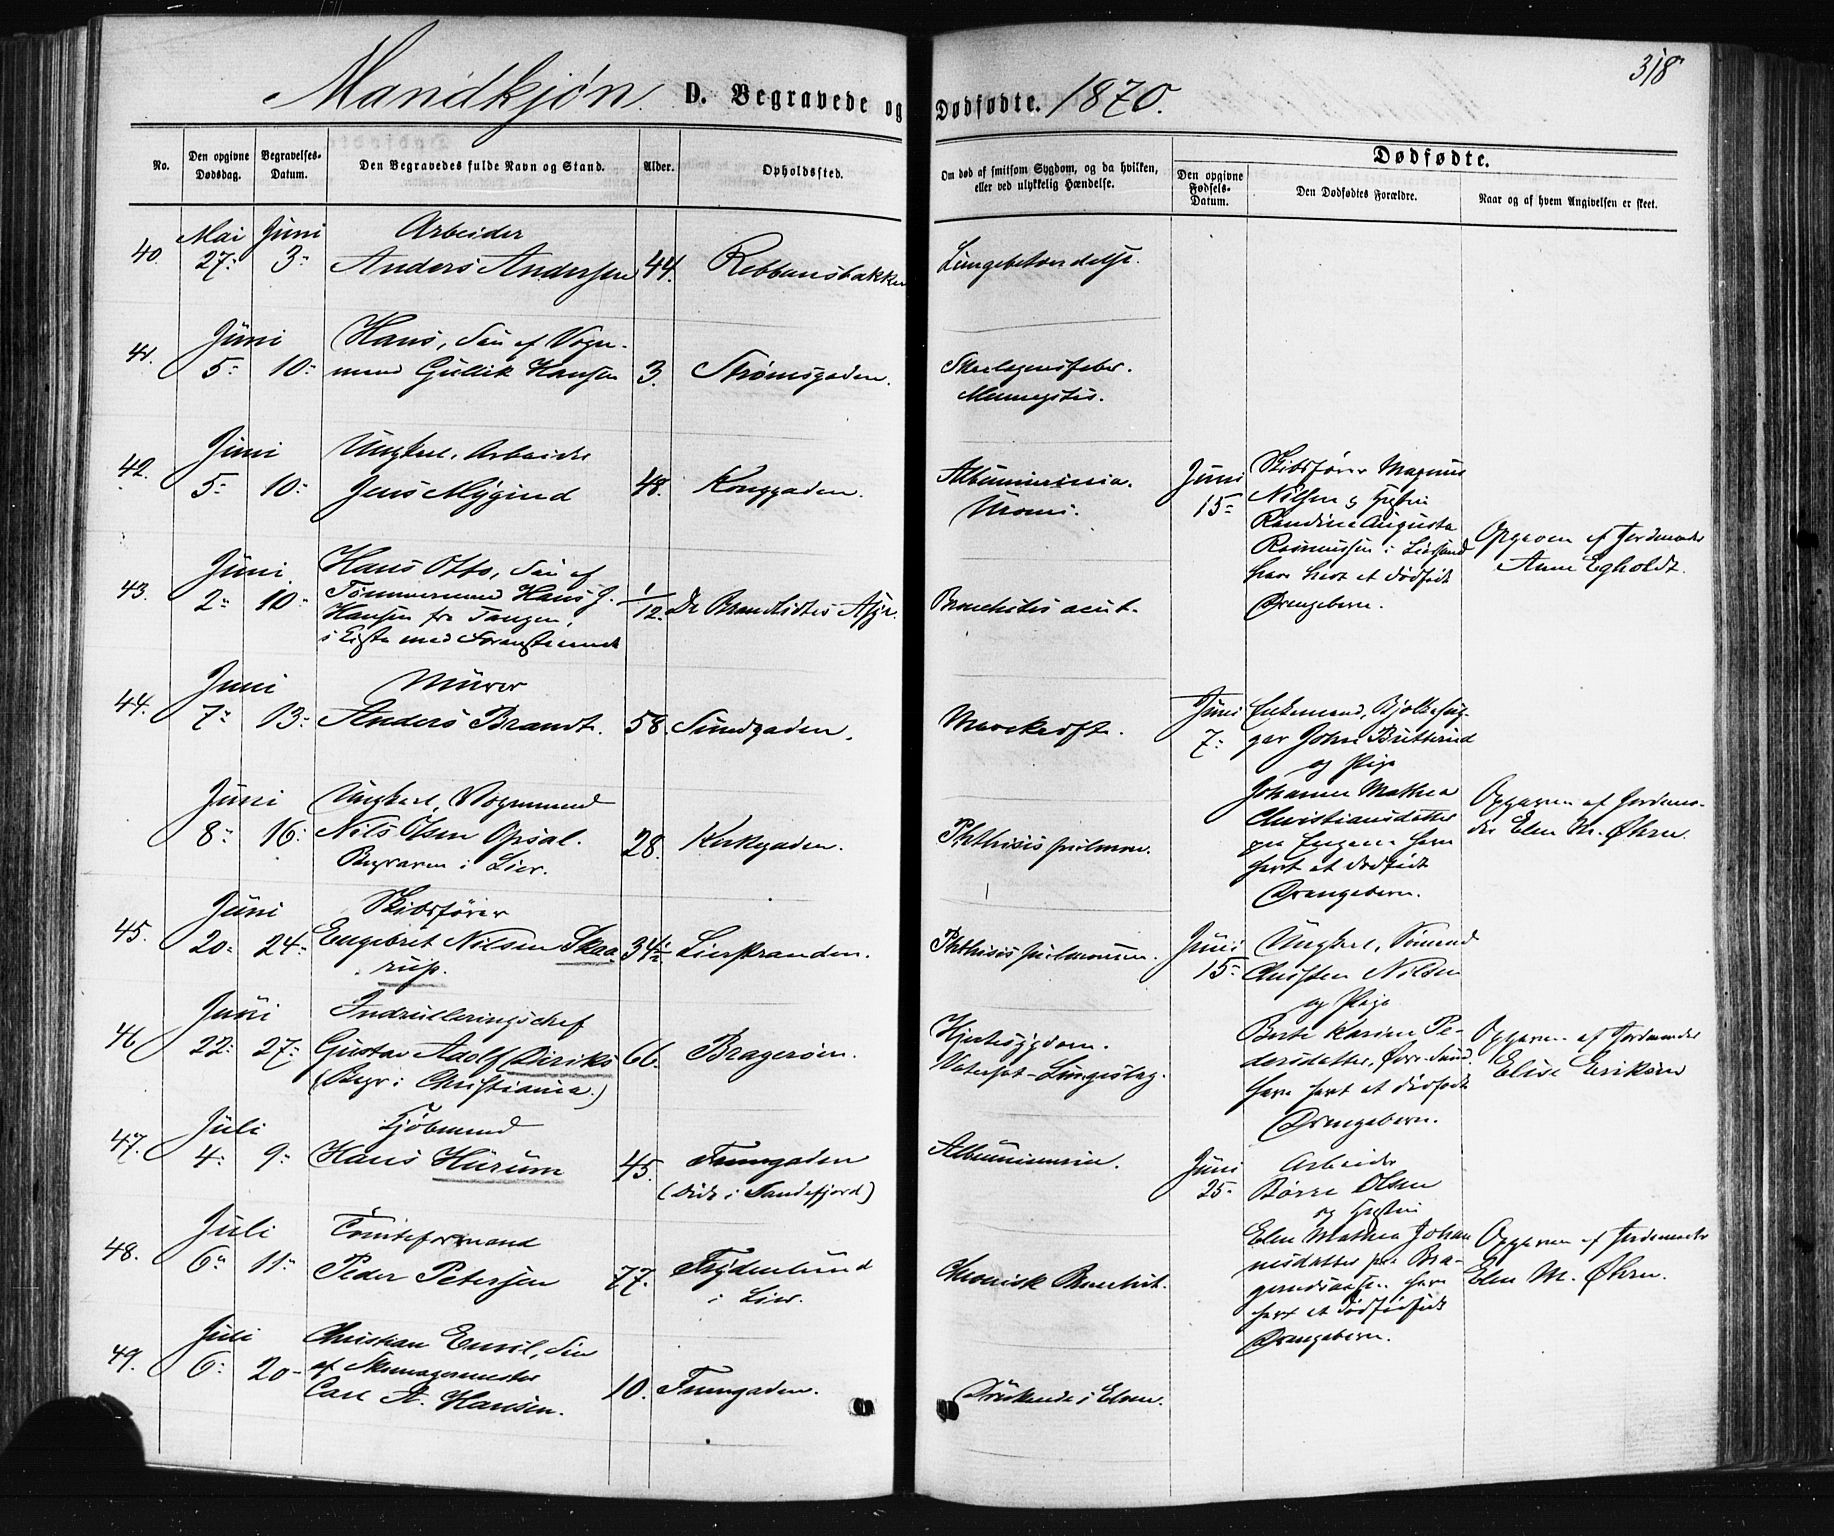 318
Mandkjøn D. Begravede og Dødfødte. 1870.
No.
Den opgivne Dødsdag.
Begravelses-Datum.
Den Begravedes fulde Navn og Stand.
Alder.
Opholdssted.
Om død af smitsom Sygdom, og da hvilken, eller ved ulykkelig Hændelse.
Dødfødte.
Den opgivne Fødsels-Datum.
Den Dødfødtes Forældre.
Naar og af hvem Angivelsen er skeet.
Mai Juni Arbeider
40. 27. 3. Anders Andersen 44. Rebbansbakken Lungebetændelse.
Juni Hans, Søn af Vogn-
41. 5. 10. mand Gullik Hansen 3. Strømsgaden. Skarlagensfeber.
Juni Ungkarl, Arbeider
42. 5. 10. Jens Mygind 48. Konggaden. Albuminuria.
Juni Hans Otto, Søn af
43. 2. 10. Tømmermand Hans J. 1/12. Bronchitis acut.
Hansen fra Tangen,
Juni Murer
44. 7. 13. Anders Brandt. 58. Sundgaden. Marvskræft.
Juni Ungkarl, Vognmand
8. 16. Nils Olsen Opsal. 28. Kirkegaden. Phthisis pulmon.
Begraven i Lier.
Juni Skibsfører
45. 20. 24. Engebret Nilsen Skaa- 34½ Lierstranden. Phthisis pulmonum.
rup.
Juni Indrulleringschef
46 22. 27. Gustav Adolf Diriks 66. Bragerøen. Hjertesygdom.
(Begr. i Christiania.)
Juli Kjøbmand
47. 4. 9. Hans Hurum 45. Albuminuria.
(død i Sandefjord)
Juli Tomteformand
48. 6. 11. Peder Petersen 77. Frydenlund Chronisk Bronchit.
i Lier.
Juli Christian Emil, Søn
49. 6. 20. af Skomagermester 10. Druknede i Elven.
Carl A. Hansen.
Juni Skibsfører Magnus
15. Nilsen og Hustru
Randine Augusta
Rasmussen i Liersand Opgiven af Jordemoder
have havt et dødfødt Anne Egholdt.
Drengebarn.
Juni Enkemand, Bjelkehug-
7. ger Johan Butterud
og Pige
Johanne Mathea Opgiven af Jordemo-
Christiansdatter der Elen M. Øhrn.
paa Engene have
havt et dødfødt
Drengebarn.
Juni Ungkarl, Sømand
15. Christen Nilsen
og Pige
Berte Karine Pe- Opgiven af Jordemoder
dersdatter, Øvre Sund, Elise Eriksen
have havt et dødfødt
Drengebarn.
Juni Arbeider
25. Børre Olsen
og Hustru
Elen Mathea Johan- Opgiven af Jordemoder
nesdatter paa Bra- Elen M. Øhrn.
gernæsaasen have
havt et dødfødt
Drengebarn.